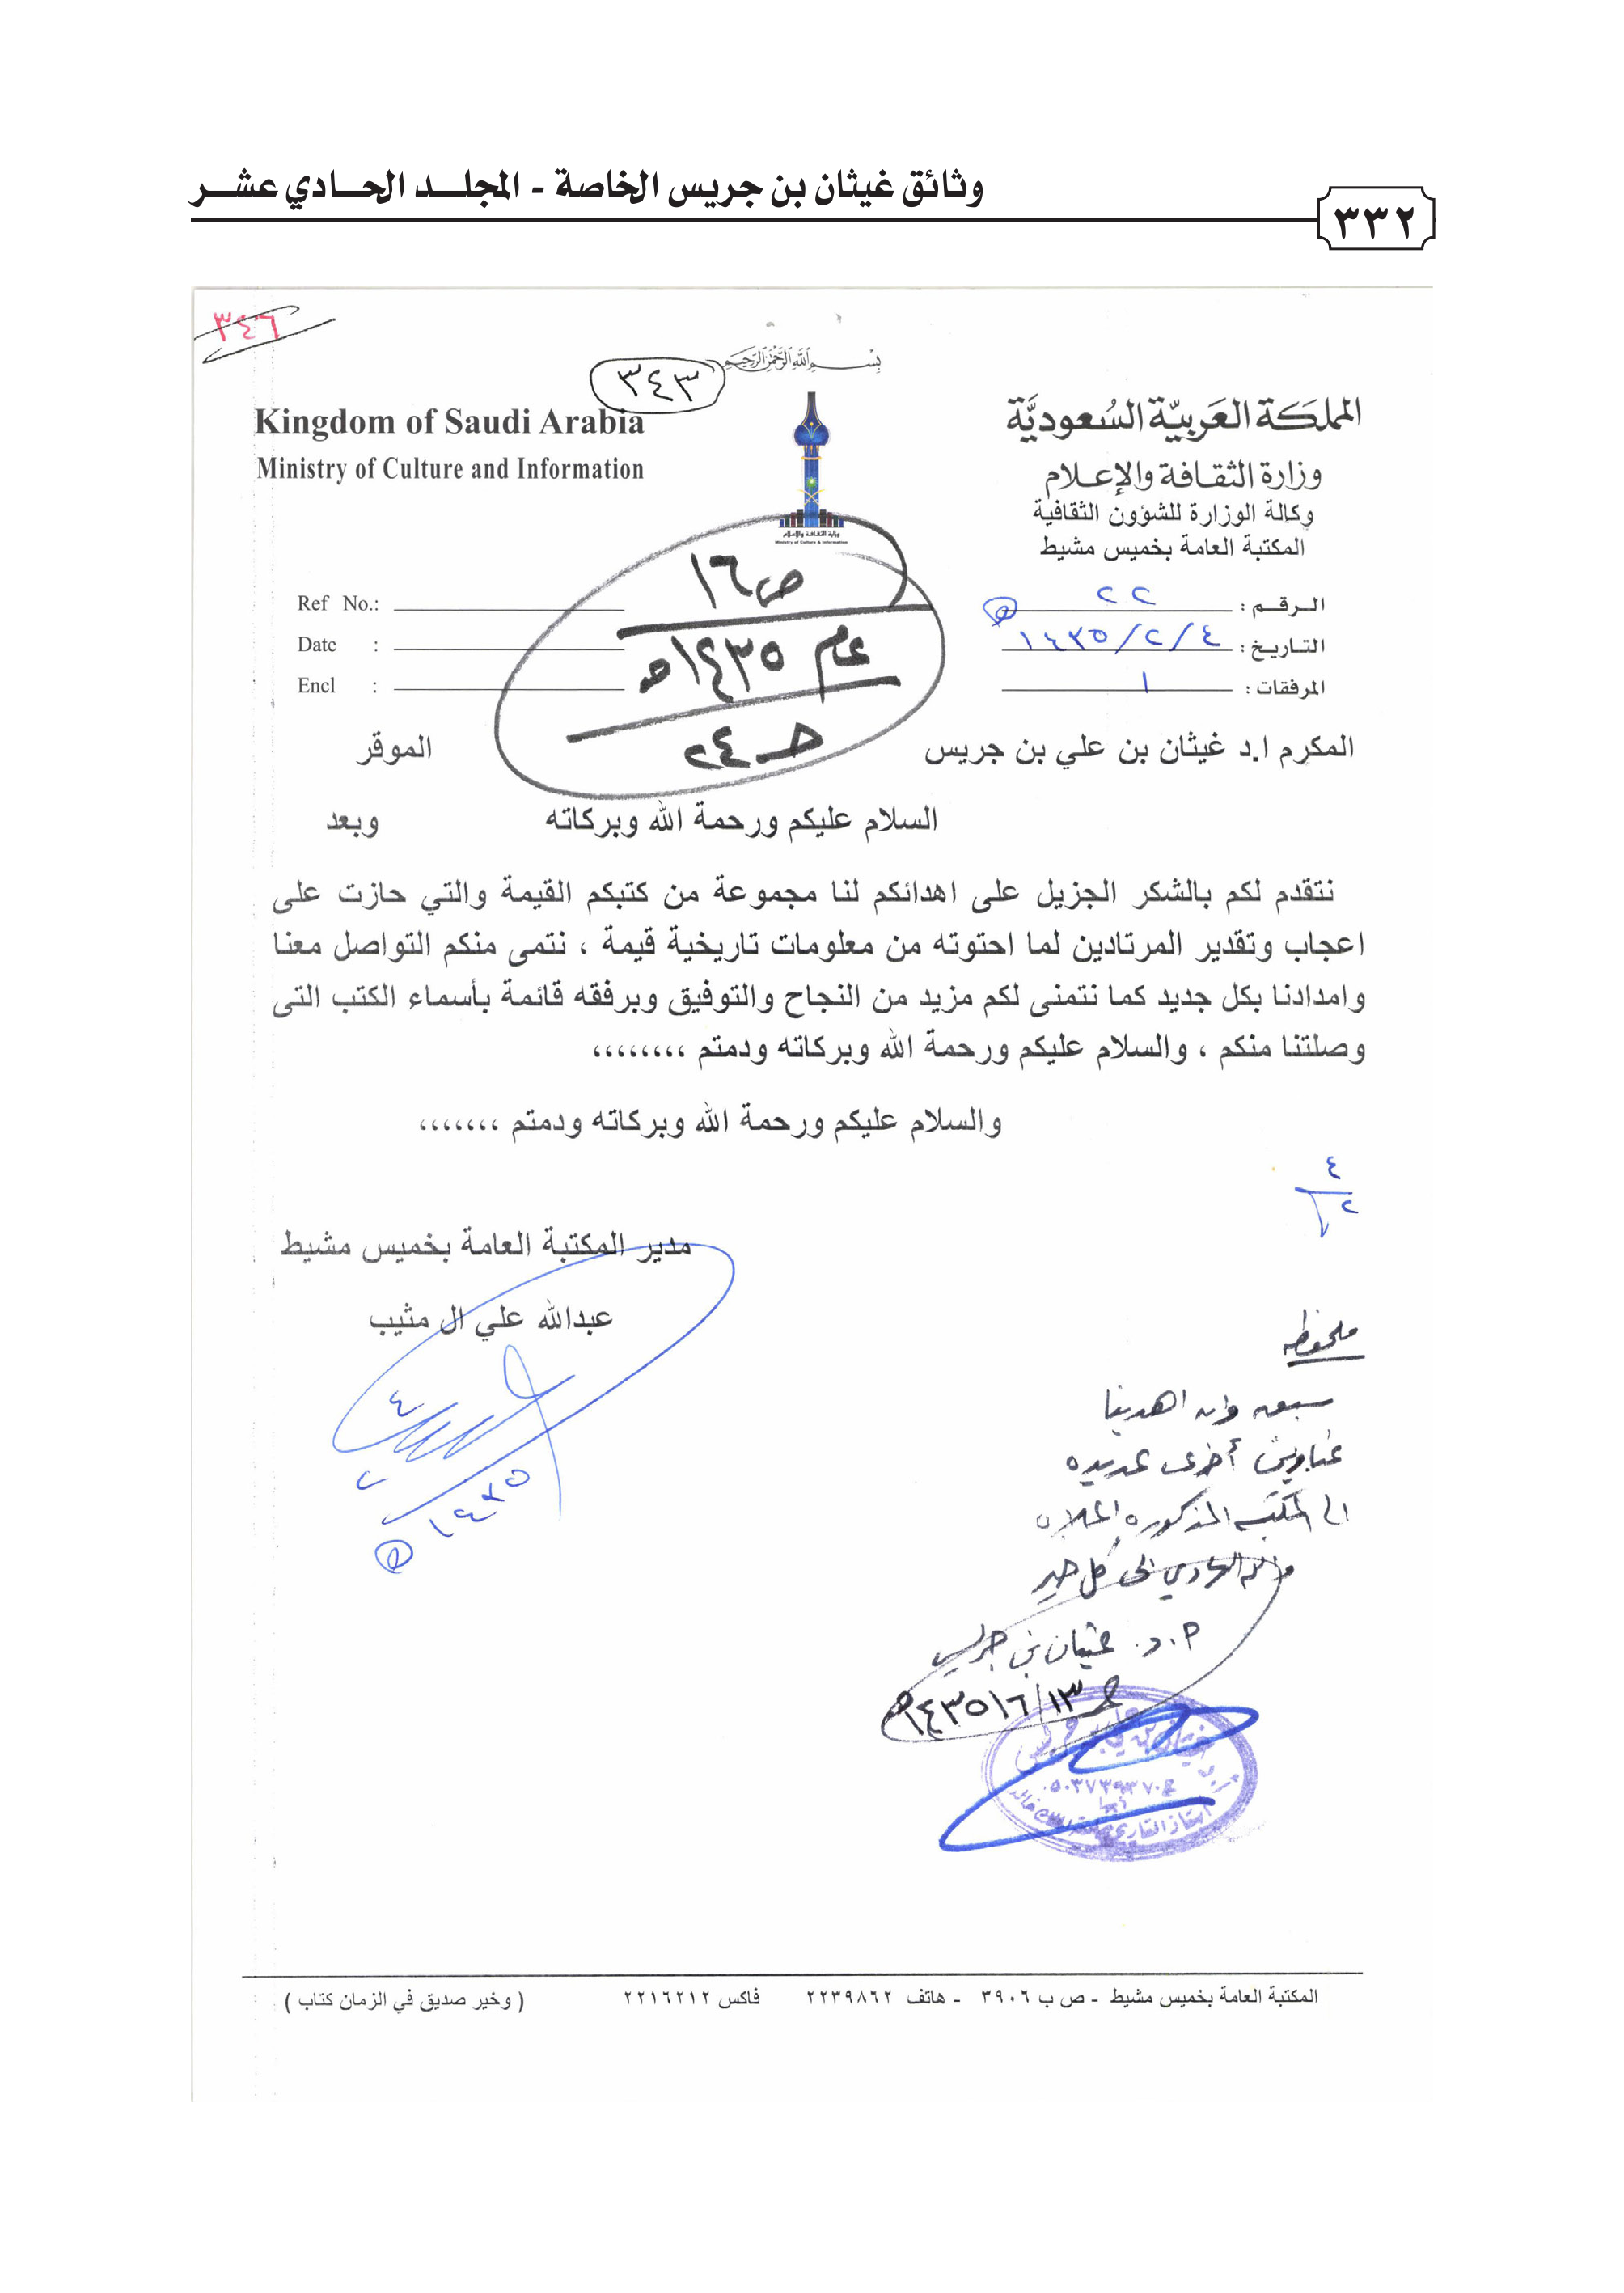 وثائق غيثان بن جريس الخاصة - المجلد الحادي عشر
٣٣٢
٣٤٦
بسم الله الرحمن الرحيم
٣٤٣
المملكة العربية السعودية
وزارة الثقافة والإعلام
وكالة الوزارة للشؤون الثقافية
المكتبة العامة بخميس مشيط
Kingdom of Saudi Arabia
Ministry of Culture and Information
وزارة الثقافة والإعلام
Ministry of Culture & Information
الرقم : ٢٢
التاريخ : ١٤٣٥/٢/٤
المرفقات : ١
Ref No.:
Date :
Encl :
ص ١٦
عام ١٤٣٥هـ
حـ ٢٤
المكرم ا.د غيثان بن علي بن جريس الموقر
السلام عليكم ورحمة الله وبركاته وبعد
نتقدم لكم بالشكر الجزيل على اهدائكم لنا مجموعة من كتبكم القيمة والتي حازت على
اعجاب وتقدير المرتادين لما احتوته من معلومات تاريخية قيمة ، نتمى منكم التواصل معنا
وامدادنا بكل جديد كما نتمنى لكم مزيد من النجاح والتوفيق وبرفقه قائمة بأسماء الكتب التى
وصلتنا منكم ، والسلام عليكم ورحمة الله وبركاته ودمتم ،،،،،،،،
والسلام عليكم ورحمة الله وبركاته ودمتم ،،،،،،،
٤
٢
مدير المكتبة العامة بخميس مشيط
عبدالله علي ال مثيب
٤
٢
١٤٣٥
ملحوظه
سبق وان اهدينا
عناوين أخرى عديده
الى المكتبه المذكوره إعلاه
والله الهادي الى كل خير
أ.د. غيثان بن جريس
١٤٣٥/٦/١٣هـ
غيثان بن علي بن جريس
المكتبة العامة بخميس مشيط - ص ب ٣٩٠٦ - هاتف ٢٢٣٩٨٦٢ فاكس ٢٢١٦٢١٢ ( وخير صديق في الزمان كتاب )